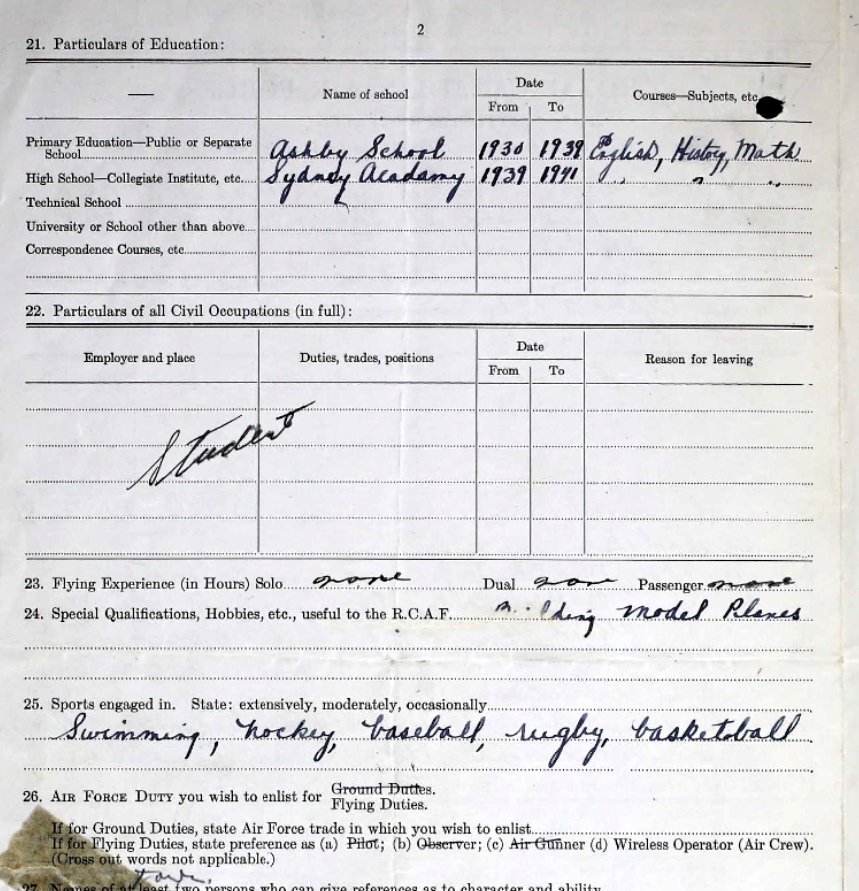 2
21. Particulars of Education:
Name of school Date Courses—Subjects, etc.
From To
Primary Education—Public or Separate
School Ashby School 1930 1939 English, History, Math
High School—Collegiate Institute, etc. Sydney Acadamy 1939 1941 " " "
Technical School
University or School other than above
Correspondence Courses, etc.
22. Particulars of all Civil Occupations (in full):
Employer and place Duties, trades, positions Date Reason for leaving
From To
Student
23. Flying Experience (in Hours) Solo none Dual non Passenger none
24. Special Qualifications, Hobbies, etc., useful to the R.C.A.F. Model Planes
25. Sports engaged in. State: extensively, moderately, occasionally
Swimming, hockey, baseball, rugby, basketball
26. AIR FORCE DUTY you wish to enlist for Ground Duties.
Flying Duties.
If for Ground Duties, state Air Force trade in which you wish to enlist
If for Flying Duties, state preference as (a) Pilot; (b) Observer; (c) Air Gunner (d) Wireless Operator (Air Crew).
(Cross out words not applicable.)
27. Names of at least two persons who can give references as to character and ability